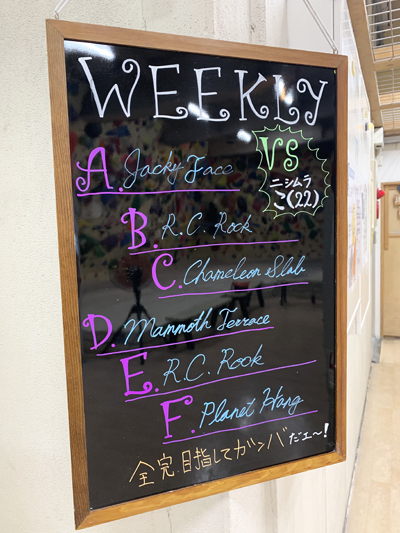 WEEKLY
VS
ニシムラ
こ(22)
A. Jacky Face
B. R.C. Rock
C. Chameleon Slab
D. Mammoth Terrace
E. R.C. Rook
F. Planet Hang
全完目指してガンバだェ〜!